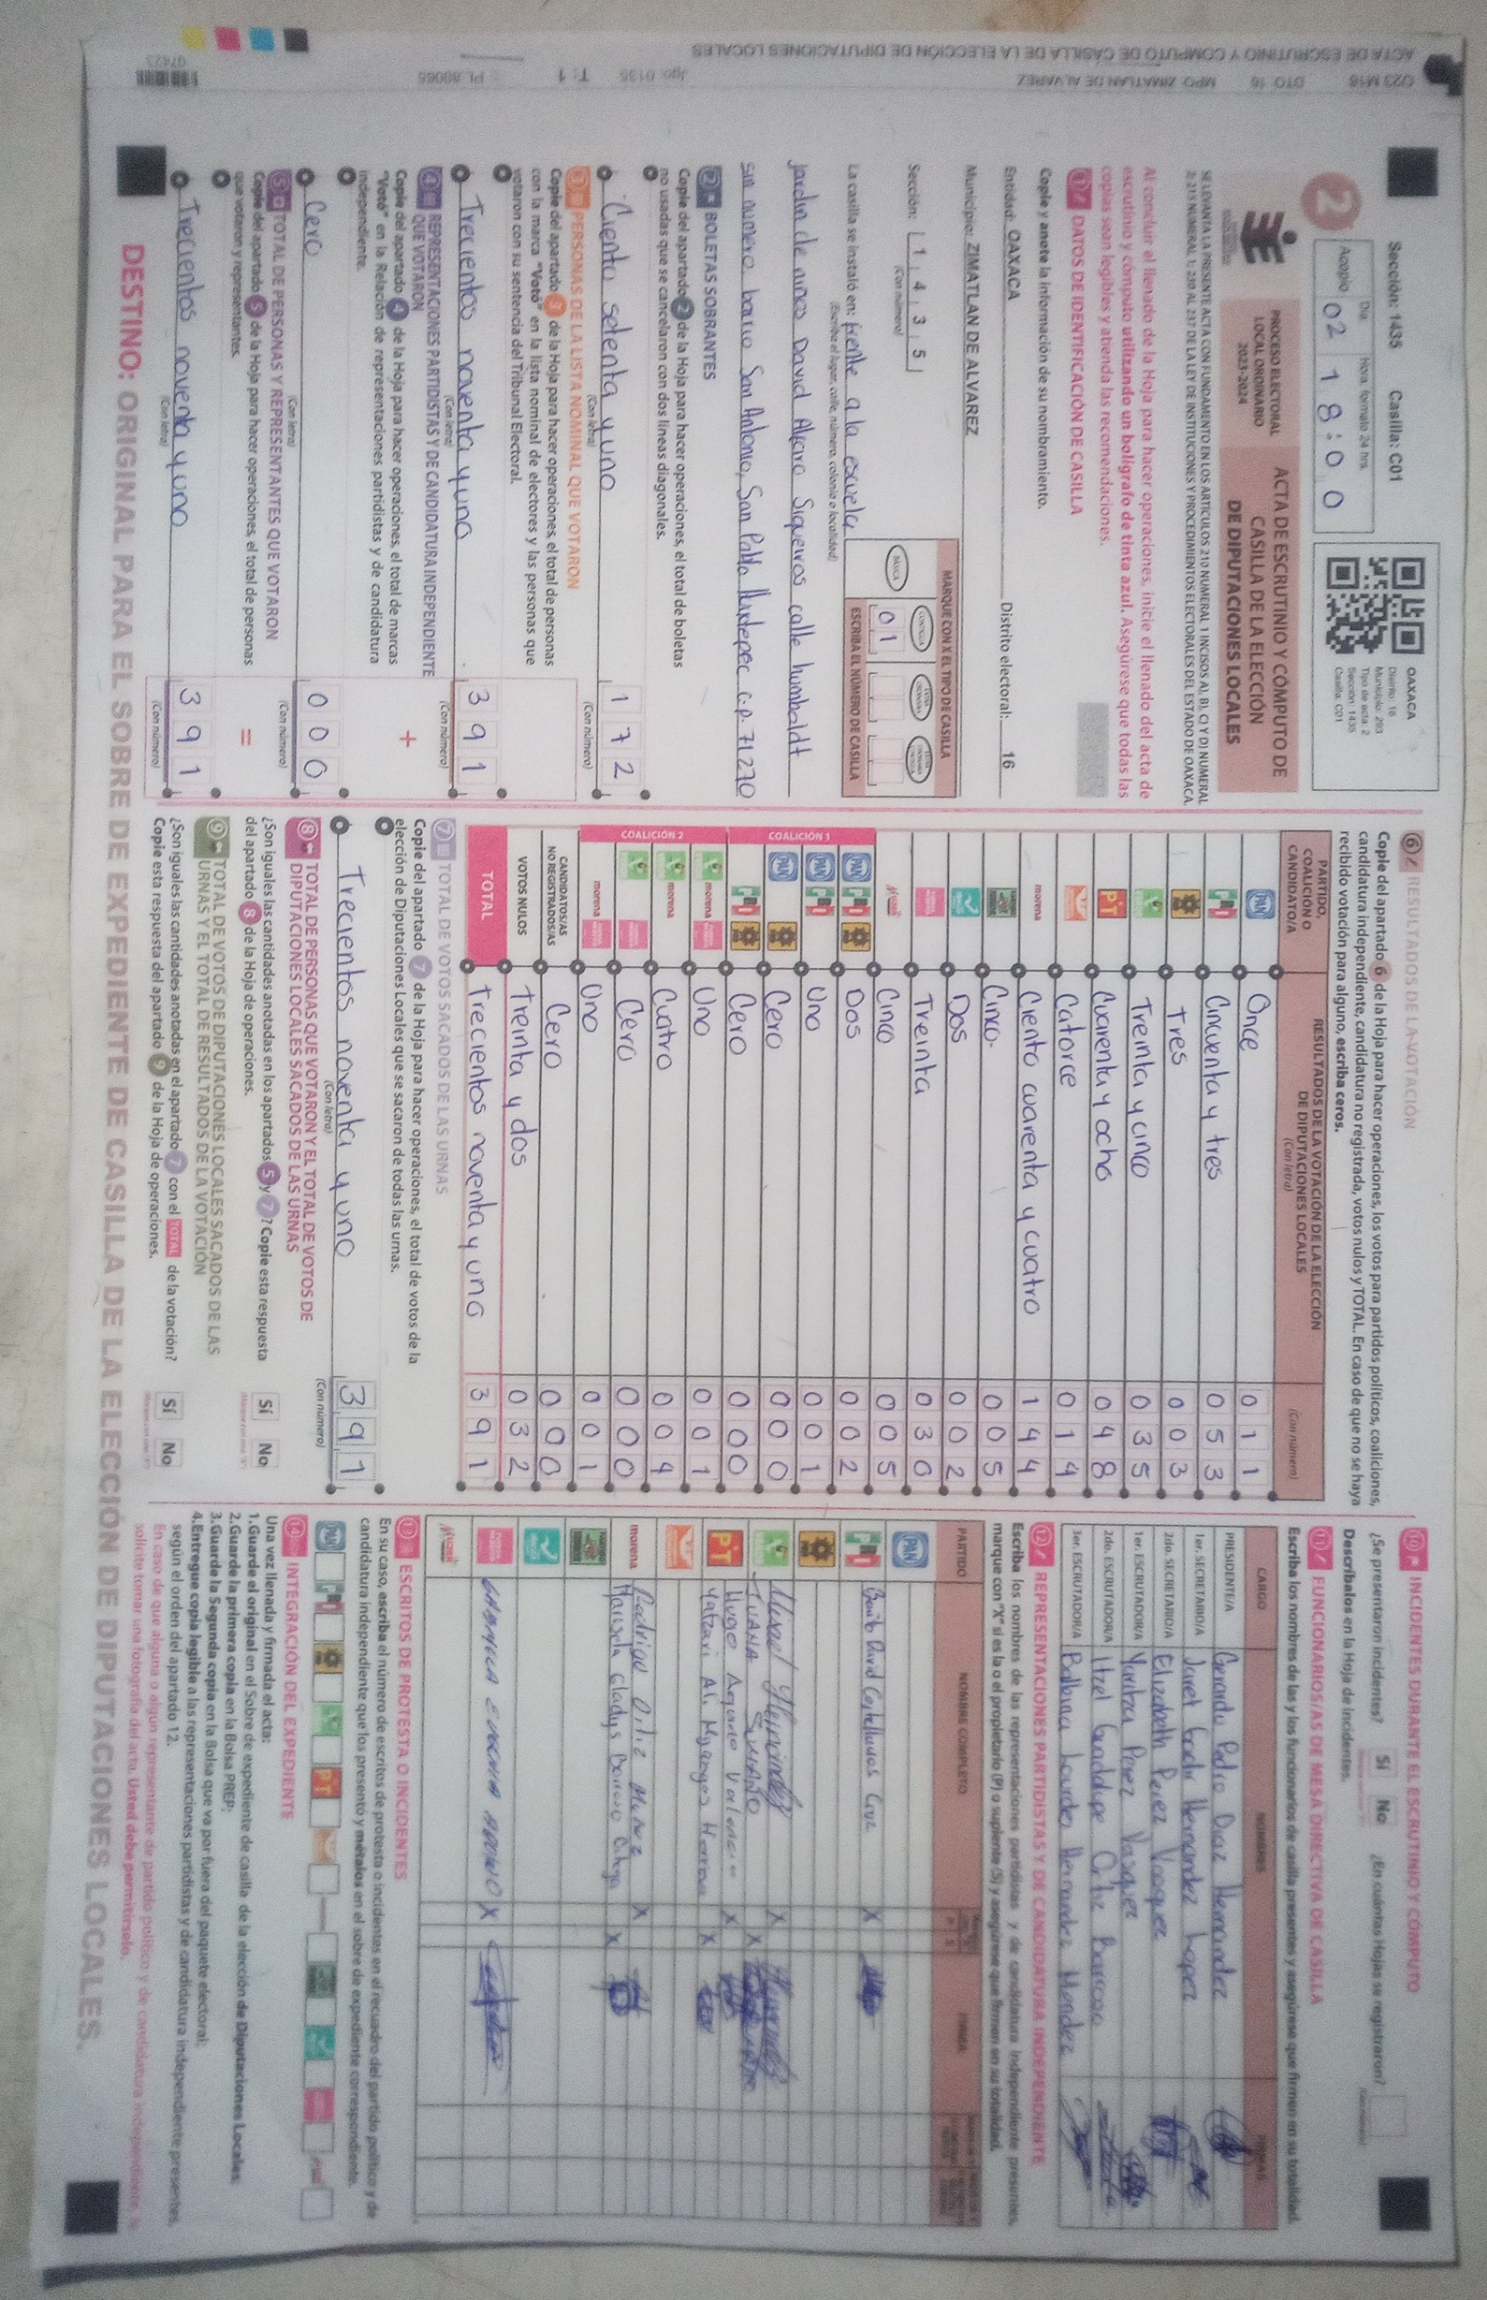 ACTA DE ESCRUTINIO Y CÓMPUTO DE CASILLA DE LA ELECCIÓN DE DIPUTACIONES LOCALES
023 M16 DTO 16 MPO. ZIMATLAN DE ALVAREZ Jgo. 0135 T: 1
07423
Sección: 1435 Casilla: C01
2
Día Hora, formato 24 hrs.
Acopio 02 18:00
OAXACA
Distrito: 16
Municipio: 293
Tipo de acta: 2
Sección: 1435
Casilla: C01
PROCESO ELECTORAL
LOCAL ORDINARIO
2023-2024
ACTA DE ESCRUTINIO Y CÓMPUTO DE
CASILLA DE LA ELECCIÓN
DE DIPUTACIONES LOCALES
SE LEVANTA LA PRESENTE ACTA CON FUNDAMENTO EN LOS ARTÍCULOS 210 NUMERAL 1 INCISOS A), B), C) Y D) NUMERAL
2; 215 NUMERAL 1; 230 AL 237 DE LA LEY DE INSTITUCIONES Y PROCEDIMIENTOS ELECTORALES DEL ESTADO DE OAXACA.
Al concluir el llenado de la Hoja para hacer operaciones, inicie el llenado del acta de
escrutinio y cómputo utilizando un bolígrafo de tinta azul. Asegúrese que todas las
copias sean legibles y atienda las recomendaciones.
1 DATOS DE IDENTIFICACIÓN DE CASILLA
Copie y anote la información de su nombramiento.
Entidad: OAXACA Distrito electoral: 16
Municipio: ZIMATLAN DE ALVAREZ
Sección: 1 4 3 5
(Con número)
MARQUE CON X EL TIPO DE CASILLA
BÁSICA CONTIGUA
01
ESCRIBA EL NÚMERO DE CASILLA
La casilla se instaló en: frente a la escuela
(Escriba el lugar, calle, número, colonia o localidad)
Jardin de niños David Alfaro Siqueiros calle humboldt
sin numero barrio San Antonio, San Pablo Huixtepec c.p. 71270
2 BOLETAS SOBRANTES
Copie del apartado 2 de la Hoja para hacer operaciones, el total de boletas
no usadas que se cancelaron con dos líneas diagonales.
Ciento setenta y uno 172
(Con letra) (Con número)
3 PERSONAS DE LA LISTA NOMINAL QUE VOTARON
Copie del apartado 3 de la Hoja para hacer operaciones, el total de personas
con la marca "Votó" en la lista nominal de electores y las personas que
votaron con su sentencia del Tribunal Electoral.
Trecientos noventa y uno 391
(Con letra) (Con número)
4 REPRESENTACIONES PARTIDISTAS Y DE CANDIDATURA INDEPENDIENTE
QUE VOTARON
Copie del apartado 4 de la Hoja para hacer operaciones, el total de marcas
"Votó" en la Relación de representaciones partidistas y de candidatura
independiente.
+
Cero 000
(Con letra) (Con número)
5 TOTAL DE PERSONAS Y REPRESENTANTES QUE VOTARON
Copie del apartado 5 de la Hoja para hacer operaciones, el total de personas
que votaron y representantes.
=
Trecientos noventa y uno 391
(Con letra) (Con número)
6 RESULTADOS DE LA VOTACIÓN
Copie del apartado 6 de la Hoja para hacer operaciones, los votos para partidos políticos, coaliciones,
candidatura independiente, candidatura no registrada, votos nulos y TOTAL. En caso de que no se haya
recibido votación para alguno, escriba ceros.
PARTIDO, COALICIÓN O CANDIDATO/A
RESULTADOS DE LA VOTACIÓN DE LA ELECCIÓN
DE DIPUTACIONES LOCALES
(Con letra) (Con número)
PAN Once 011
PRI Cincuenta y tres 053
Tres 003
Treinta y cinco 035
PT Cuarenta y ocho 048
Catorce 014
morena Ciento cuarenta y cuatro 144
Cinco. 005
Dos 002
Treinta 030
Cinco 005
COALICIÓN 1
PAN PRI Dos 002
PAN PRI Uno 001
PAN Cero 000
PRI Cero 000
COALICIÓN 2
morena Uno 001
morena Cuatro 004
Cero 000
morena Uno 001
CANDIDATOS/AS
NO REGISTRADOS/AS Cero 000
VOTOS NULOS Treinta y dos 032
TOTAL Trecientos noventa y uno 391
7 TOTAL DE VOTOS SACADOS DE LAS URNAS
Copie del apartado 7 de la Hoja para hacer operaciones, el total de votos de la
elección de Diputaciones Locales que se sacaron de todas las urnas.
Trecientos noventa y uno 391
(Con letra) (Con número)
8 TOTAL DE PERSONAS QUE VOTARON Y EL TOTAL DE VOTOS DE
DIPUTACIONES LOCALES SACADOS DE LAS URNAS
¿Son iguales las cantidades anotadas en los apartados 5 y 7? Copie esta respuesta
del apartado 8 de la Hoja de operaciones. Sí No
9 TOTAL DE VOTOS DE DIPUTACIONES LOCALES SACADOS DE LAS
URNAS Y EL TOTAL DE RESULTADOS DE LA VOTACIÓN
¿Son iguales las cantidades anotadas en el apartado 7 con el TOTAL de la votación?
Copie esta respuesta del apartado 9 de la Hoja de operaciones. Sí No
10 INCIDENTES DURANTE EL ESCRUTINIO Y CÓMPUTO
¿Se presentaron incidentes? Sí No ¿En cuántas Hojas se registraron?
Descríbalos en la Hoja de incidentes.
11 FUNCIONARIOS/AS DE MESA DIRECTIVA DE CASILLA
Escriba los nombres de las y los funcionarios de casilla presentes y asegúrese que firmen en su totalidad.
CARGO NOMBRES FIRMAS
PRESIDENTE/A Gerardo Pedro Diaz Hernandez
1er. SECRETARIO/A Janet Hernandez Lopez
2do. SECRETARIO/A Elizabeth Perez Vasquez
1er. ESCRUTADOR/A Yaritza Perez Vasquez
2do. ESCRUTADOR/A Itzel Guadalupe Ortiz Barroso
3er. ESCRUTADOR/A Balbina Lourdes Hernandez Mendez
12 REPRESENTACIONES PARTIDISTAS Y DE CANDIDATURA INDEPENDIENTE
Escriba los nombres de las representaciones partidistas y de candidatura independiente presentes,
marque con "X" si es la o el propietario (P) o suplente (S) y asegúrese que firmen en su totalidad.
PARTIDO NOMBRE COMPLETO FIRMA
PAN
PRI Benito David Castellanos Cruz X
Misael Hernandez X
JUANA X
PT Hugo Aquino X
Yatzari X
morena Rodrigo Ortiz X
Marisela Gladys Barroso X
X
13 ESCRITOS DE PROTESTA O INCIDENTES
En su caso, escriba el número de escritos de protesta o incidentes en el recuadro del partido político y de
candidatura independiente que los presentó y métalos en el sobre de expediente correspondiente.
PAN PRI PT
14 INTEGRACIÓN DEL EXPEDIENTE
Una vez llenada y firmada el acta:
1.Guarde el original en el Sobre de expediente de casilla de la elección de Diputaciones Locales;
2.Guarde la primera copia en la Bolsa PREP;
3.Guarde la Segunda copia en la Bolsa que va por fuera del paquete electoral;
4.Entregue copia legible a las representaciones partidistas y de candidatura independiente presentes,
según el orden del apartado 12.
En caso de que alguna o algún representante de partido político y de candidatura independiente, le
solicite tomar una fotografía del acta. Usted debe permitírselo.
DESTINO: ORIGINAL PARA EL SOBRE DE EXPEDIENTE DE CASILLA DE LA ELECCIÓN DE DIPUTACIONES LOCALES.